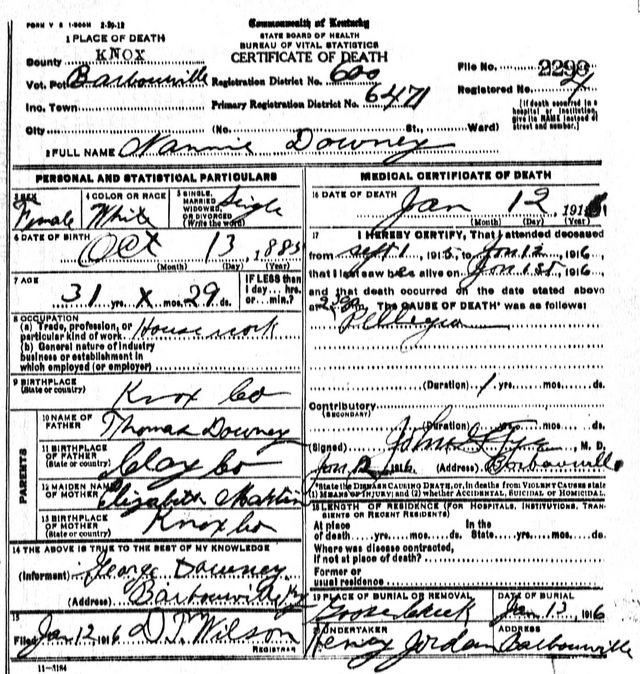 FORM V S 1-500M 2-20-12
Commonwealth of Kentucky
STATE BOARD OF HEALTH
BUREAU OF VITAL STATISTICS
CERTIFICATE OF DEATH
1 PLACE OF DEATH
County KNOX
File No. 2293
Vot. Pct Barbourville Registration District No. 600
Registered No.
Inc. Town Primary Registration District No. 6471
[If death occurred in a hospital or institution, give its NAME instead of street and number.]
City (No. St., Ward)
2 FULL NAME Nannie Downey
PERSONAL AND STATISTICAL PARTICULARS
3 SEX Female
4 COLOR OR RACE White
5 SINGLE, MARRIED, WIDOWED, OR DIVORCED (Write the word) Single
6 DATE OF BIRTH Oct 13, 1885
(Month) (Day) (Year)
7 AGE 31 yrs. x mos. 29 ds.
IF LESS than 1 day... hrs. or... min.?
8 OCCUPATION
(a) Trade, profession, or particular kind of work House work
(b) General nature of industry business or establishment in which employed (or employer)
9 BIRTHPLACE (State or country) Knox Co
PARENTS
10 NAME OF FATHER Thomas Downey
11 BIRTHPLACE OF FATHER (State or country) Clay Co
12 MAIDEN NAME OF MOTHER Elizabeth
13 BIRTHPLACE OF MOTHER (State or country) Knox Co
14 THE ABOVE IS TRUE TO THE BEST OF MY KNOWLEDGE
(Informent) George Downey
(Address) Barbourville Ky
15
Filed Jan 12, 1916 D. T. Wilson
REGISTRAR
11-3184
MEDICAL CERTIFICATE OF DEATH
16 DATE OF DEATH Jan 12, 1916
(Month) (Day) (Year)
17 I HEREBY CERTIFY, That I attended deceased
from Sept 1, 1915, to Jan 12, 1916
that I last saw alive on Jan 1st, 1916
and that death occurred on the date stated above
at The CAUSE OF DEATH* was as follows:
Pellegra
(Duration) 1 yrs. mos. ds.
Contributory (SECONDARY)
(Duration) yrs. mos. ds.
(Signed) John M. D.
Jan 12, 1916 (Address) Barbourville
*State the DISEASE CAUSING DEATH, or, in deaths from VIOLENT CAUSES state (1) MEANS OF INJURY; and (2) whether ACCIDENTAL, SUICIDAL OR HOMICIDAL.
18 LENGTH OF RESIDENCE (FOR HOSPITALS, INSTITUTIONS, TRANSIENTS OR RECENT RESIDENTS)
At place of death yrs. mos. ds. In the State yrs. mos. ds.
Where was disease contracted, if not at place of death?
Former or usual residence
19 PLACE OF BURIAL OR REMOVAL Goose Creek
DATE OF BURIAL Jan 13, 1916
UNDERTAKER Henry Jordan
ADDRESS Barbourville